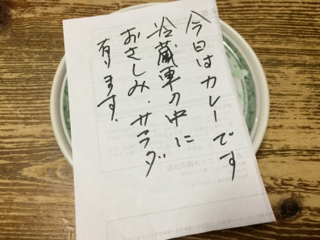 今日はカレーです
冷蔵車の中に
おさしみ．サラダ
有ります．